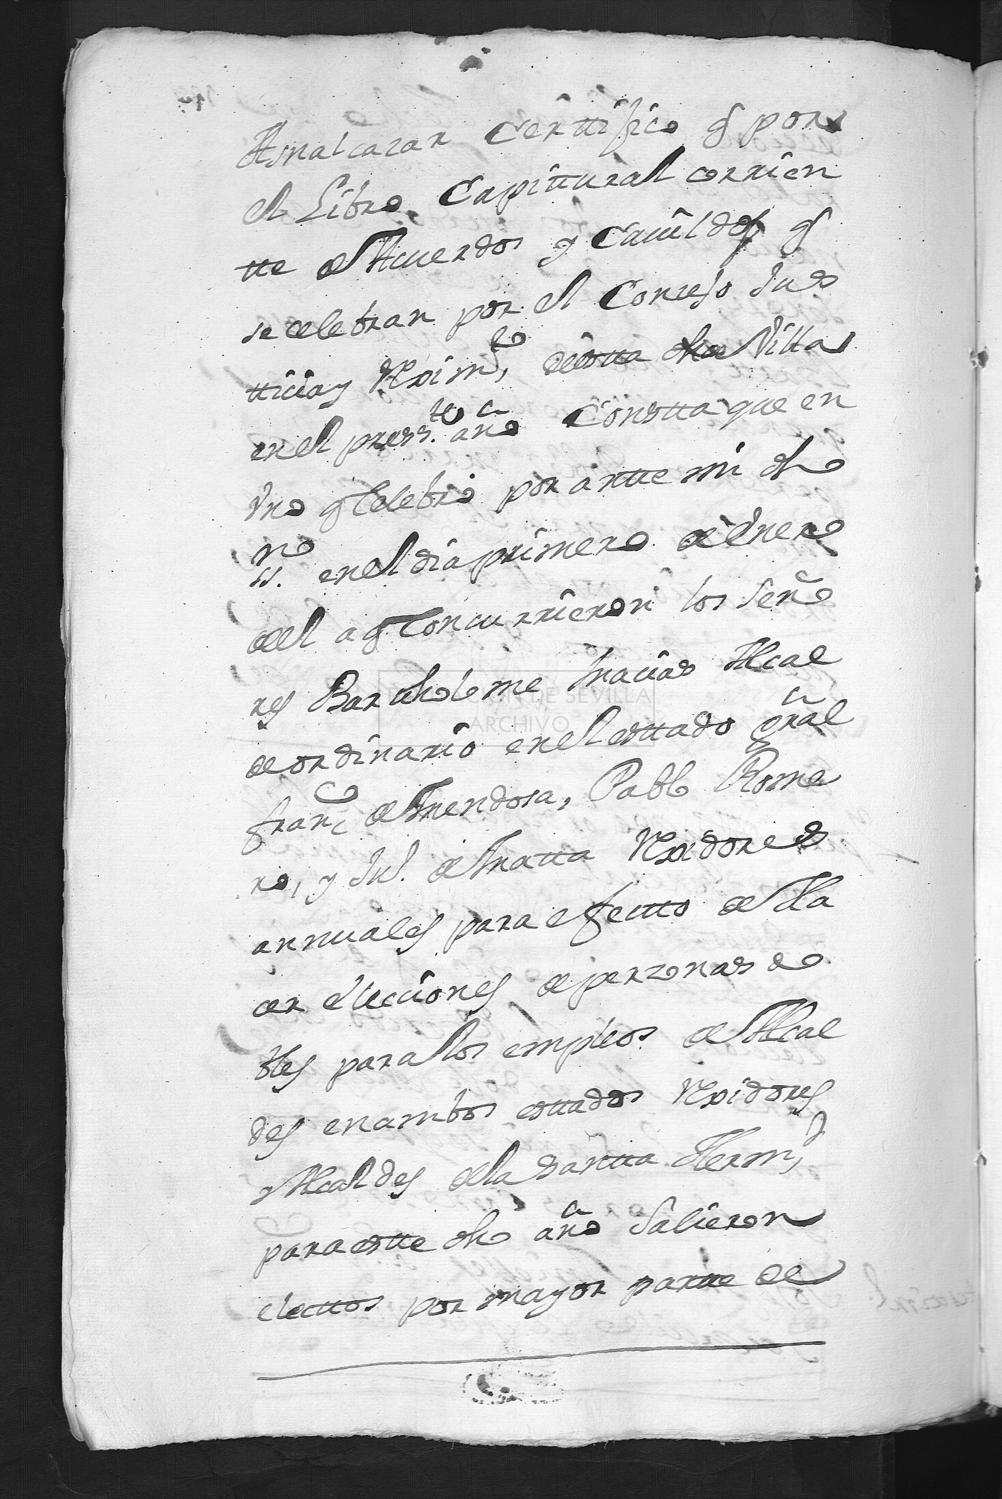 Asnalcazar Certtifico q por
el Libro Capitural corrien
tte de Acuerdos y Cavildos q
se celebran por el Consejo Jus
tticia y Rexim.to de estta dha Villa
en el press.te año Constta que en
Uno q Celebró por antte mi dho
ss.no en el dia primero de Enero
del a q Concurrieron los Seño
res Bartholome Macias Alcal
de ordinario en el esttado Gral
Franc.co de Mendosa, Pablo Rome
ro, y Ju.o de Matta Rexidores
annuales para efectto de Ha
cer elecciones de perzonas no
bles para los empleos de Alcal
des en ambos esttados Rexidores
y Alcaldes de la Santta Herm.d
para estte dho año Salieron
electtos por mayor partte de
ACION DE SEVILLA
ARCHIVO